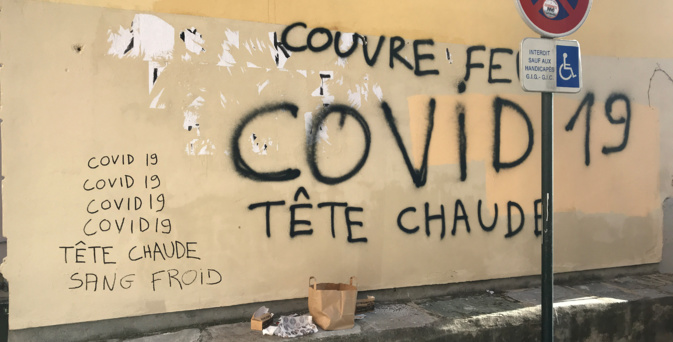 COUVRE FEU
COVID 19
TÊTE CHAUDE
COVID 19
COVID 19
COVID 19
COVID 19
TÊTE CHAUDE
SANG FROID
INTERDIT
SAUF AUX
HANDICAPÉS
G.I.G. - G.I.C.